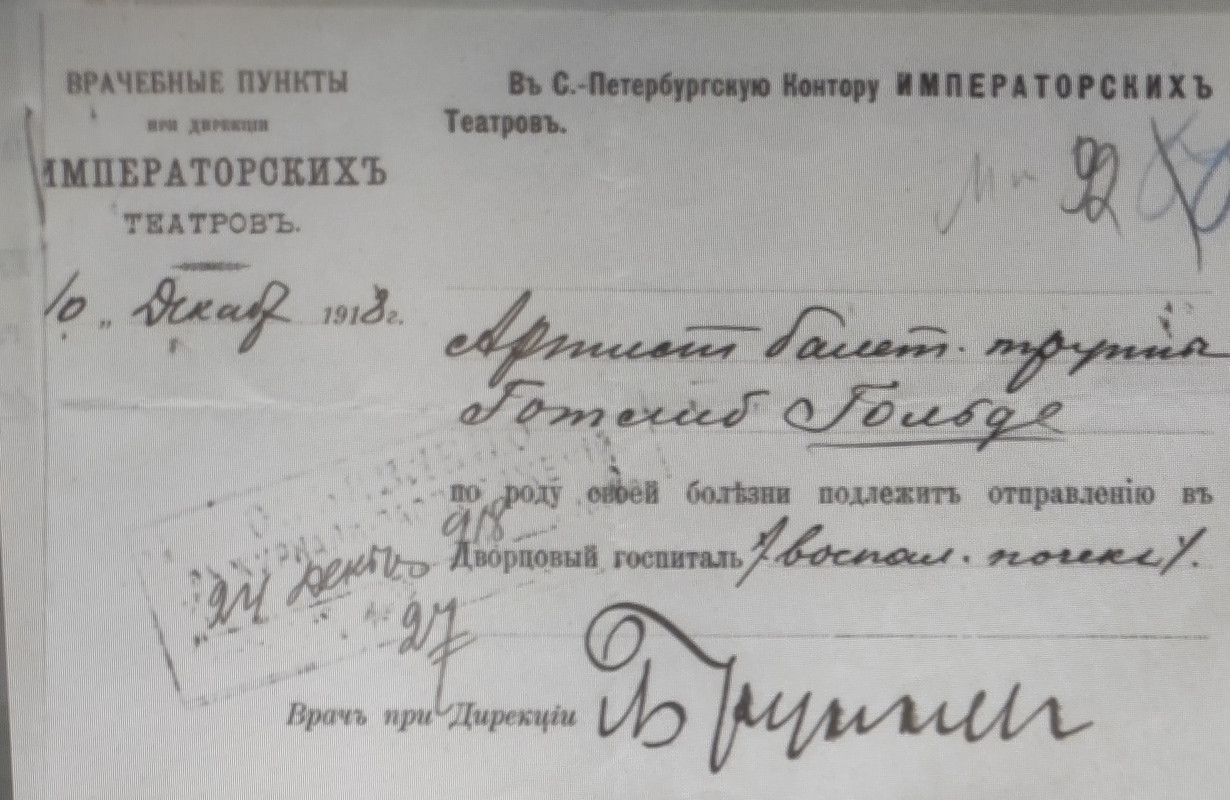 ВРАЧЕБНЫЕ ПУНКТЫ
ПРИ ДИРЕКЦІИ
ИМПЕРАТОРСКИХЪ
ТЕАТРОВЪ.
10 „ Декаб 1913 г.
Въ С.-Петербургскую Контору ИМПЕРАТОРСКИХЪ
Театровъ.
92
Артист балет. труппы
Готлиб Гольде
по роду своей болѣзни подлежитъ отправленію въ
Дворцовый госпиталь /воспал. почек/.
918
24
27
Врачъ при Дирекціи